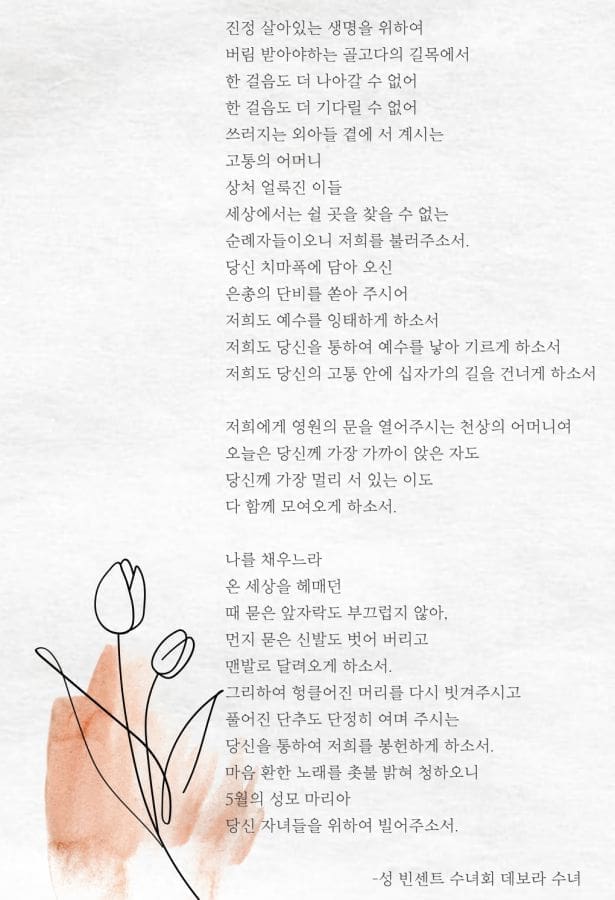 진정 살아있는 생명을 위하여
버림 받아야하는 골고다의 길목에서
한 걸음도 더 나아갈 수 없어
한 걸음도 더 기다릴 수 없어
쓰러지는 외아들 곁에 서 계시는
고통의 어머니
상처 얼룩진 이들
세상에서는 쉴 곳을 찾을 수 없는
순례자들이오니 저희를 불러주소서.
당신 치마폭에 담아 오신
은총의 단비를 쏟아 주시어
저희도 예수를 잉태하게 하소서
저희도 당신을 통하여 예수를 낳아 기르게 하소서
저희도 당신의 고통 안에 십자가의 길을 건너게 하소서
저희에게 영원의 문을 열어주시는 천상의 어머니여
오늘은 당신께 가장 가까이 앉은 자도
당신께 가장 멀리 서 있는 이도
다 함께 모여오게 하소서.
나를 채우느라
온 세상을 헤매던
때 묻은 앞자락도 부끄럽지 않아,
먼지 묻은 신발도 벗어 버리고
맨발로 달려오게 하소서.
그리하여 헝클어진 머리를 다시 빗겨주시고
풀어진 단추도 단정히 여며 주시는
당신을 통하여 저희를 봉헌하게 하소서.
마음 환한 노래를 촛불 밝혀 청하오니
5월의 성모 마리아
당신 자녀들을 위하여 빌어주소서.
-성 빈센트 수녀회 데보라 수녀